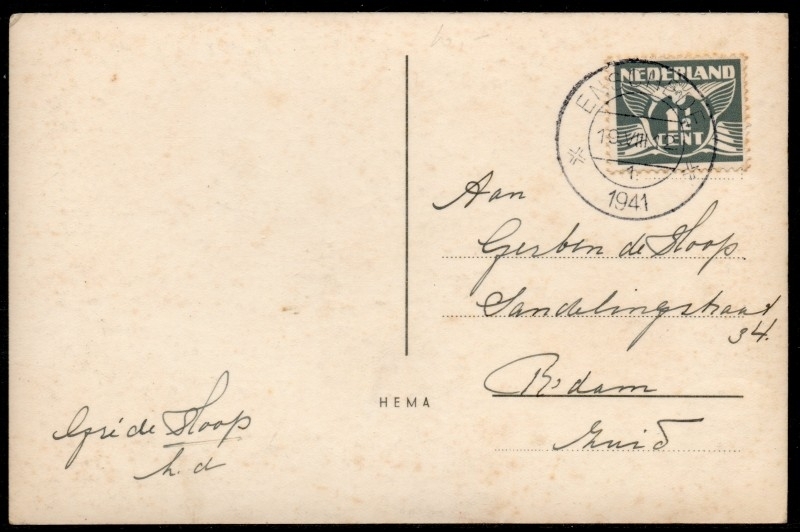 NEDERLAND
1½
CENT
19.VIII.12
1.
1941
Aan
Gerben de Hoop.
Sandelingstraat
34.
R'dam
Zuid
HEMA
de Hoop
h.d